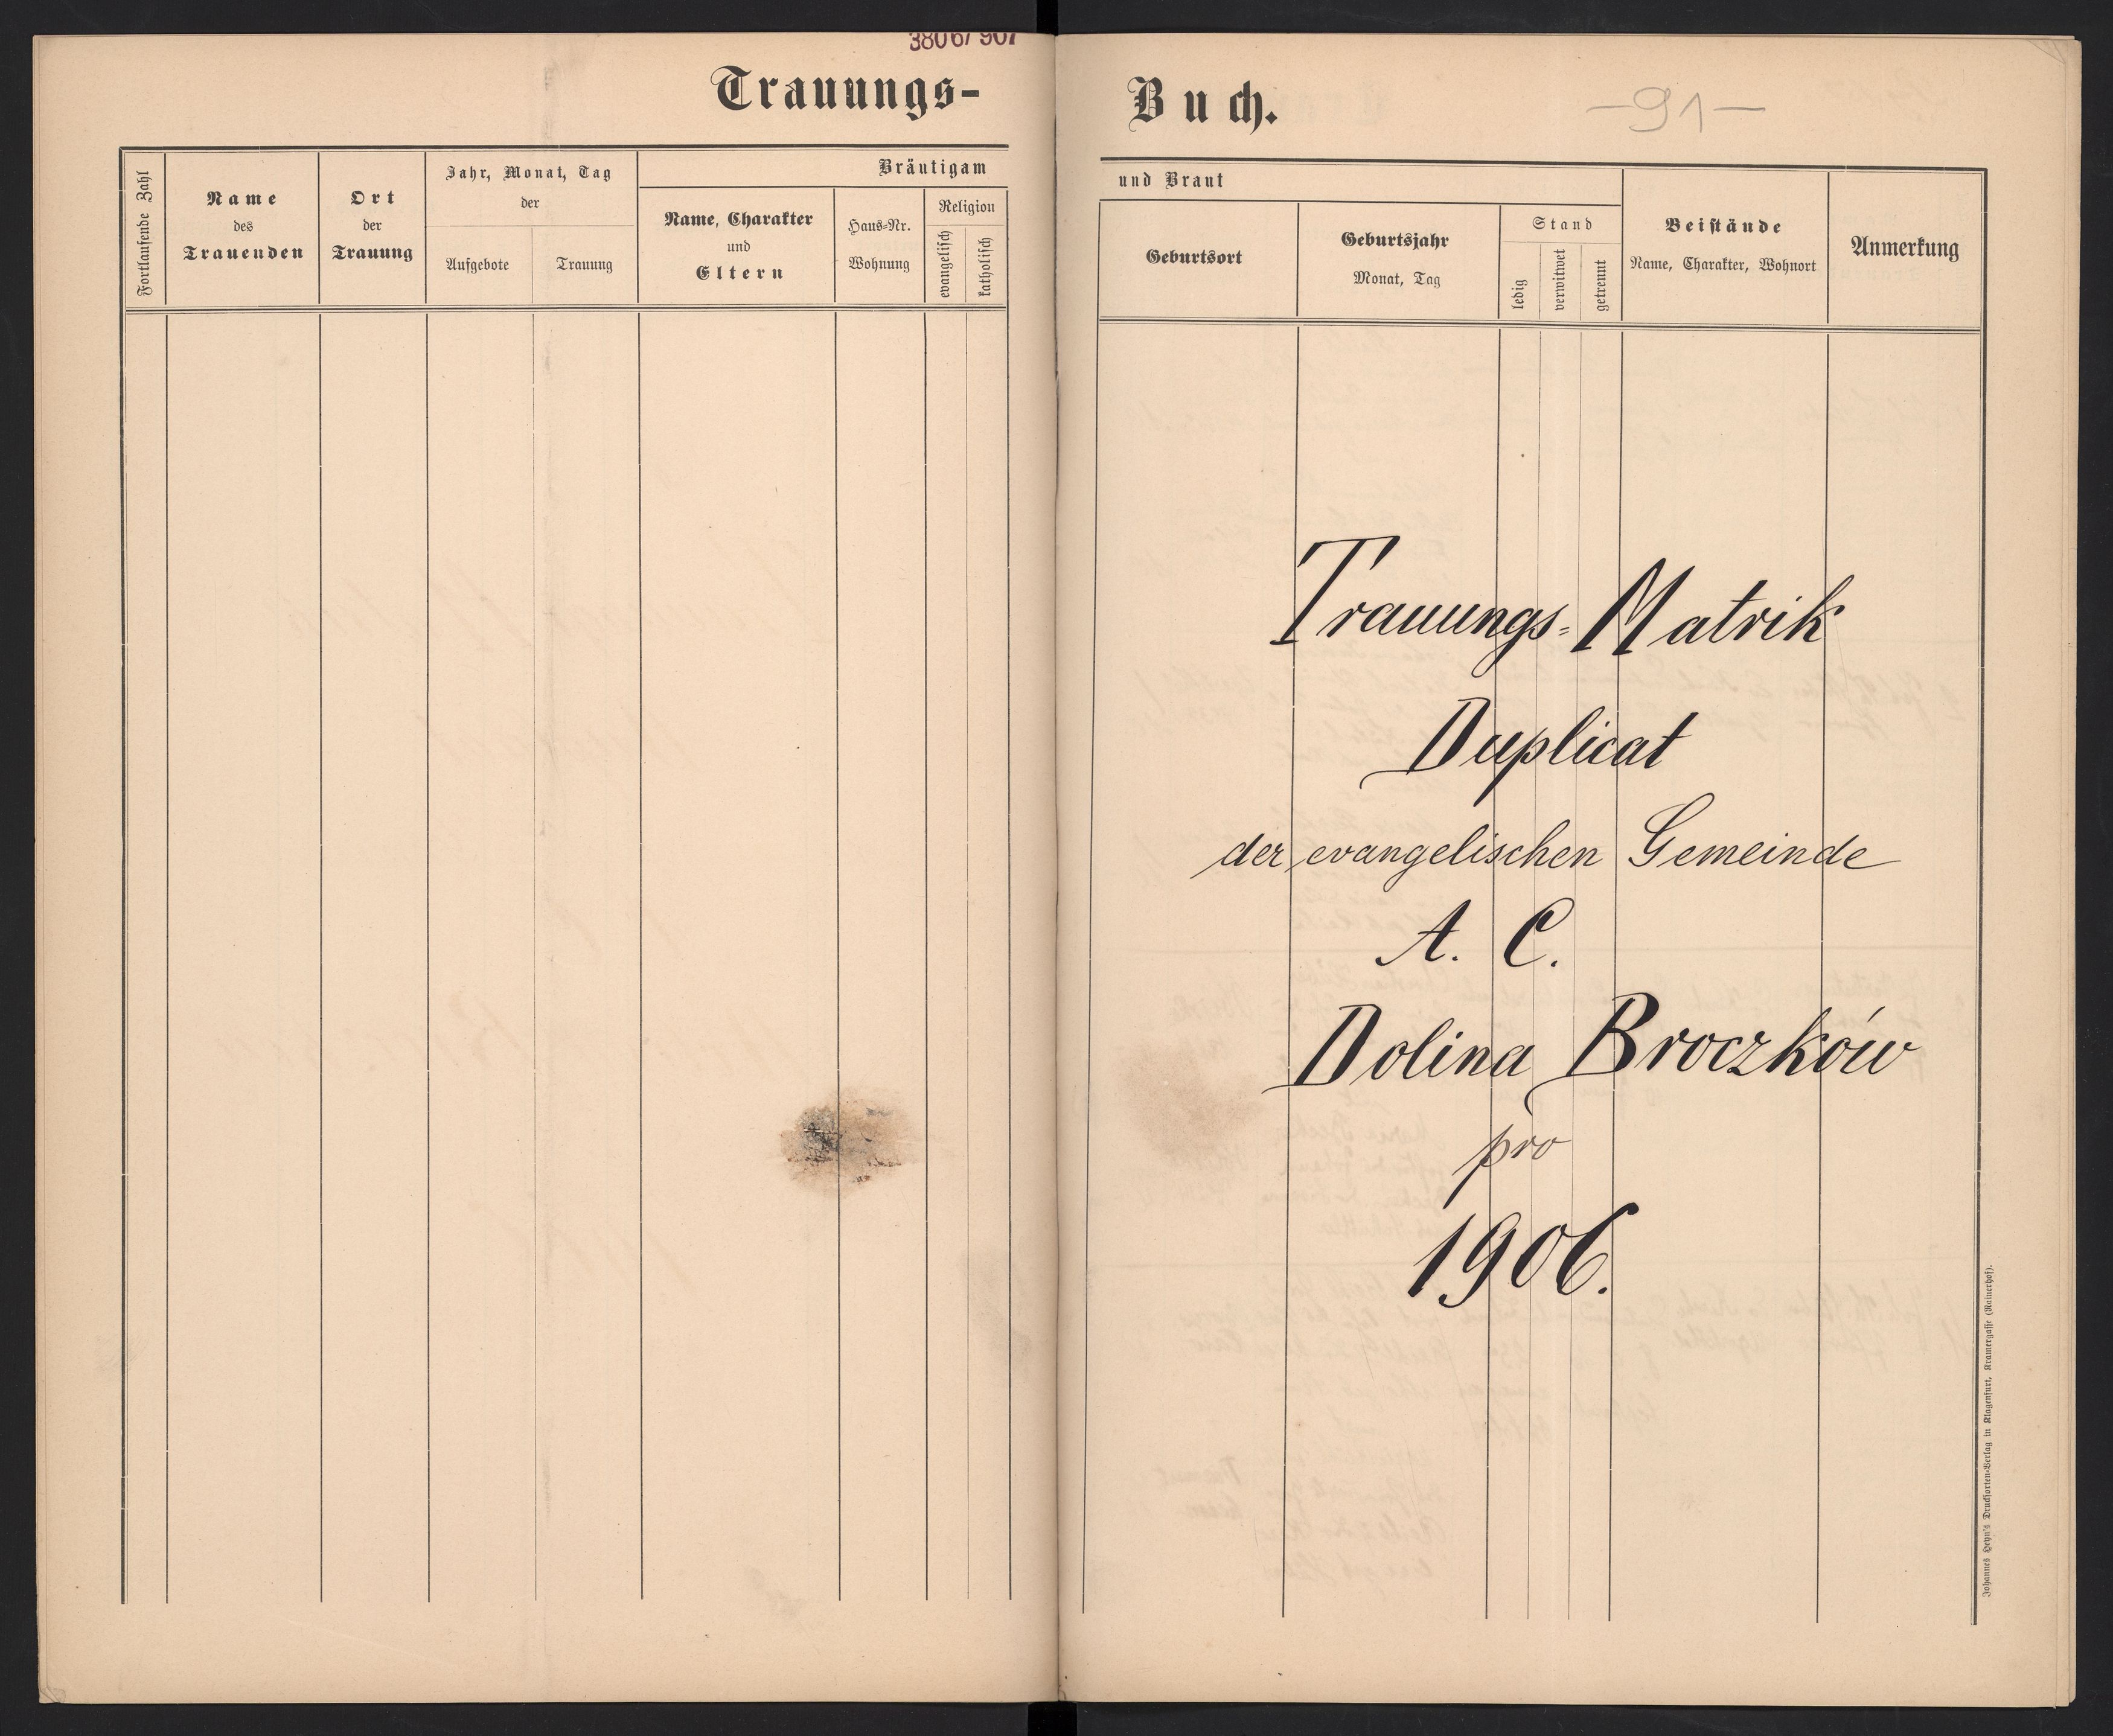 38067 907
Trauungs-
Fortlaufende Zahl
Name
des
Trauenden
Ort
der
Trauung
Jahr, Monat, Tag
der
Aufgebote
Trauung
Bräutigam
Name, Charakter
und
Eltern
Haus-Nr.
Wohnung
Religion
evangelisch
katholisch
Buch.
-91-
und Braut
Geburtsort
Geburtsjahr
Monat, Tag
Stand
ledig
verwitwet
getrennt
Beistände
Name, Charakter, Wohnort
Anmerkung
Trauungs=Matrik
Duplicat
der evangelischen Gemeinde
A. C.
Dolina Broczków
pro
1906.
Johannes Heyn's Drucksorten-Verlag in Klagenfurt, Kramergasse (Rainerhof).